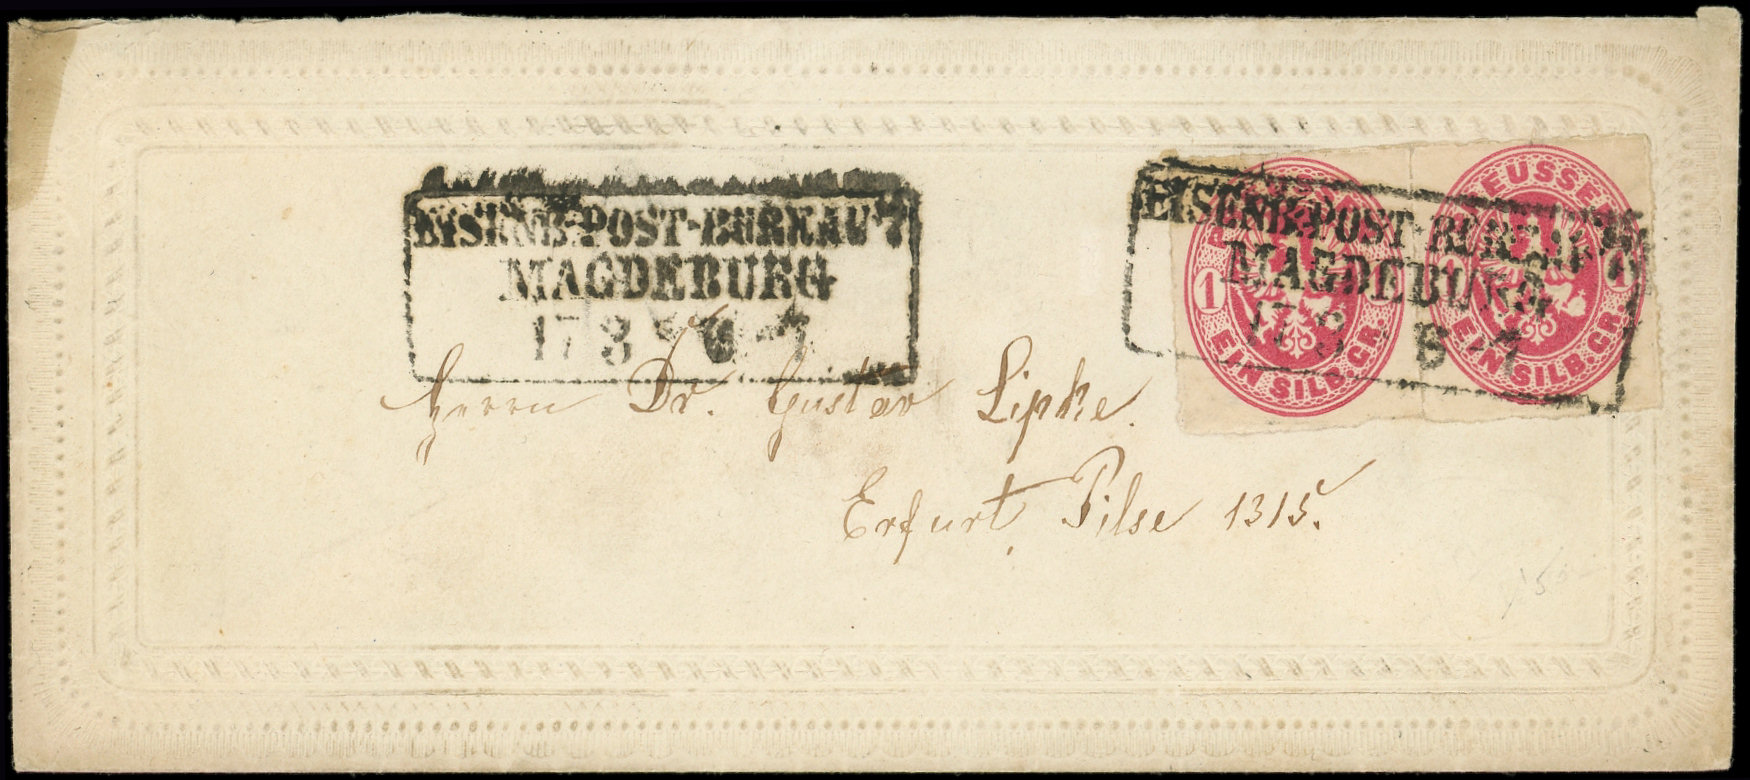 EISENB-POST-BUREAU 7
MAGDEBURG
17 8 6-7
EISENB-POST-BUREAU
MAGDEBURG
17 8 6-7
EUSSE
1 1
EIN SILB.GR.
1 1
EIN SILB.GR.
Herrn Dr. Gustav Lipke.
Erfurt, Pilse 1315.